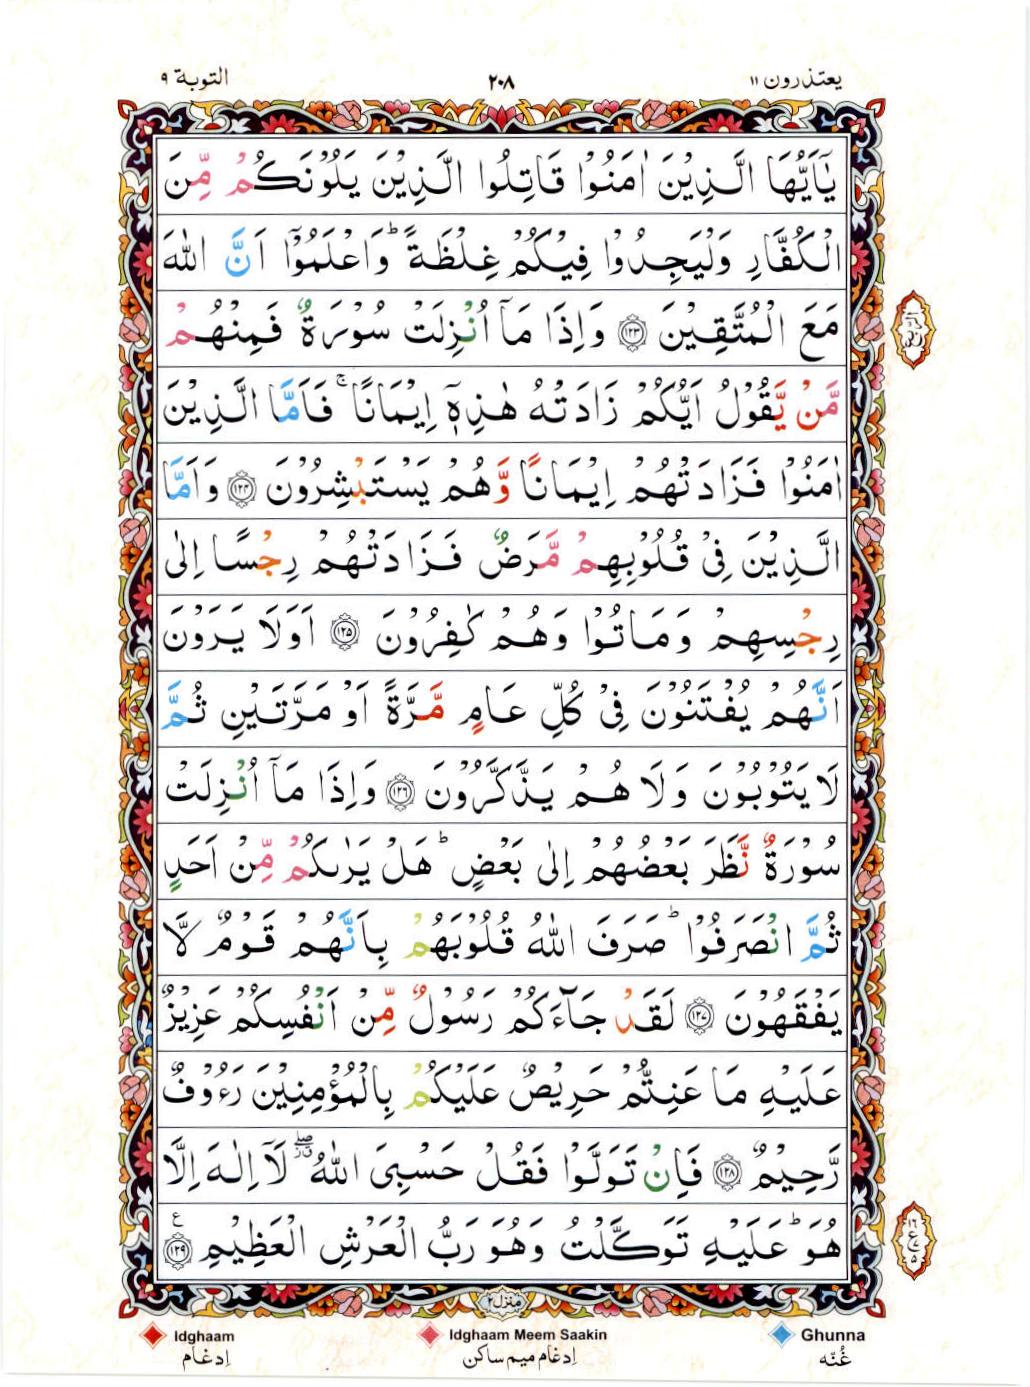 يعتذرون ١١
٢٠٨
التوبة ٩
يٰٓاَيُّهَا الَّذِيْنَ اٰمَنُوْا قَاتِلُوا الَّذِيْنَ يَلُوْنَكُمْ مِّنَ
الْكُفَّارِ وَلْيَجِدُوْا فِيْكُمْ غِلْظَةً ؕ وَاعْلَمُوْۤا اَنَّ اللّٰهَ
مَعَ الْمُتَّقِيْنَ ﴿۱۲۳﴾ وَاِذَا مَاۤ اُنْزِلَتْ سُوْرَةٌ فَمِنْهُمْ
الربع
مَّنْ يَّقُوْلُ اَيُّكُمْ زَادَتْهُ هٰذِهٖۤ اِيْمَانًا ۚ فَاَمَّا الَّذِيْنَ
اٰمَنُوْا فَزَادَتْهُمْ اِيْمَانًا وَّهُمْ يَسْتَبْشِرُوْنَ ﴿۱۲۴﴾ وَاَمَّا
الَّذِيْنَ فِيْ قُلُوْبِهِمْ مَّرَضٌ فَزَادَتْهُمْ رِجْسًا اِلٰى
رِجْسِهِمْ وَمَاتُوْا وَهُمْ كٰفِرُوْنَ ﴿۱۲۵﴾ اَوَلَا يَرَوْنَ
اَنَّهُمْ يُفْتَنُوْنَ فِيْ كُلِّ عَامٍ مَّرَّةً اَوْ مَرَّتَيْنِ ثُمَّ
لَا يَتُوْبُوْنَ وَلَا هُمْ يَذَّكَّرُوْنَ ﴿۱۲۶﴾ وَاِذَا مَاۤ اُنْزِلَتْ
سُوْرَةٌ نَّظَرَ بَعْضُهُمْ اِلٰى بَعْضٍ ؕ هَلْ يَرٰىكُمْ مِّنْ اَحَدٍ
ثُمَّ انْصَرَفُوْا ؕ صَرَفَ اللّٰهُ قُلُوْبَهُمْ بِاَنَّهُمْ قَوْمٌ لَّا
يَفْقَهُوْنَ ﴿۱۲۷﴾ لَقَدْ جَآءَكُمْ رَسُوْلٌ مِّنْ اَنْفُسِكُمْ عَزِيْزٌ
عَلَيْهِ مَا عَنِتُّمْ حَرِيْصٌ عَلَيْكُمْ بِالْمُؤْمِنِيْنَ رَءُوْفٌ
رَّحِيْمٌ ﴿۱۲۸﴾ فَاِنْ تَوَلَّوْا فَقُلْ حَسْبِيَ اللّٰهُ ۖ لَاۤ اِلٰهَ اِلَّا
هُوَ ؕ عَلَيْهِ تَوَكَّلْتُ وَهُوَ رَبُّ الْعَرْشِ الْعَظِيْمِ ﴿۱۲۹﴾
١٦
ع
٥
منزل ٢
Idghaam
Idghaam Meem Saakin
Ghunna
اِدغَام
اِدغَام ميم ساكن
غُنّه